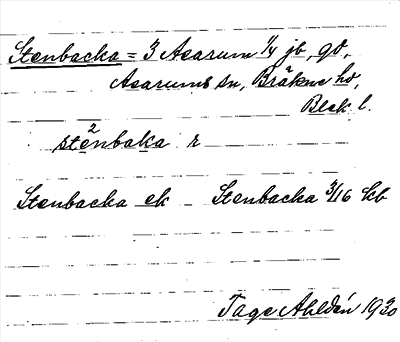 Stenbacka = 3 Asarum 1/4 jb, gd,
Asarums sn, Bräkne hd,
Blek. l.
2
stenbaka r
Stenbacka ek Stenbacka 3/16 kb
Tage Ahldén 1930